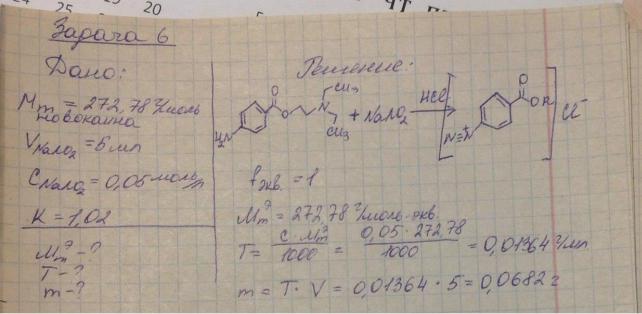 20
25
20
5
Задача 6
Дано:
Mm = 272,78 г/моль
новокаина
VNaNO2 = 5 мл
CNaNO2 = 0,05 моль/л
K = 1,02
Mmэ - ?
T - ?
m - ?
Решение:
CH3
O
O
N
CH3
H2N
+ NaNO2
HCl
O
OR
N≡N+
Cl-
fэкв. = 1
Mmэ = 272,78 г/моль·экв.
T = C · Mmэ / 1000 = 0,05 · 272,78 / 1000 = 0,01364 г/мл
m = T · V = 0,01364 · 5 = 0,0682 г